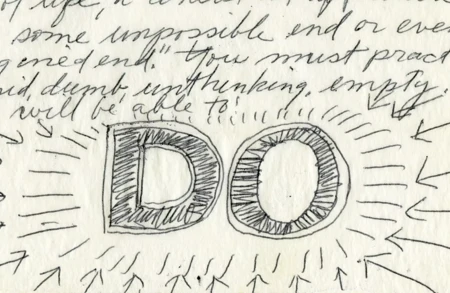 of life,
some impossible end or even
end." You must pract
dumb, unthinking, empty.
will be able to:
DO